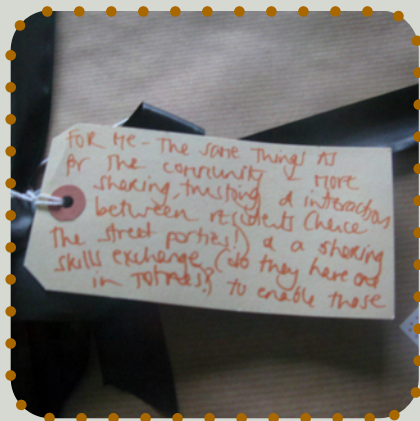 FOR ME - The same Things As
for The community - more
sharing, trusting & interaction
between residents (hence
The street parties!) & a sharing
skills exchange (do they have one
in Totnes?) to enable those